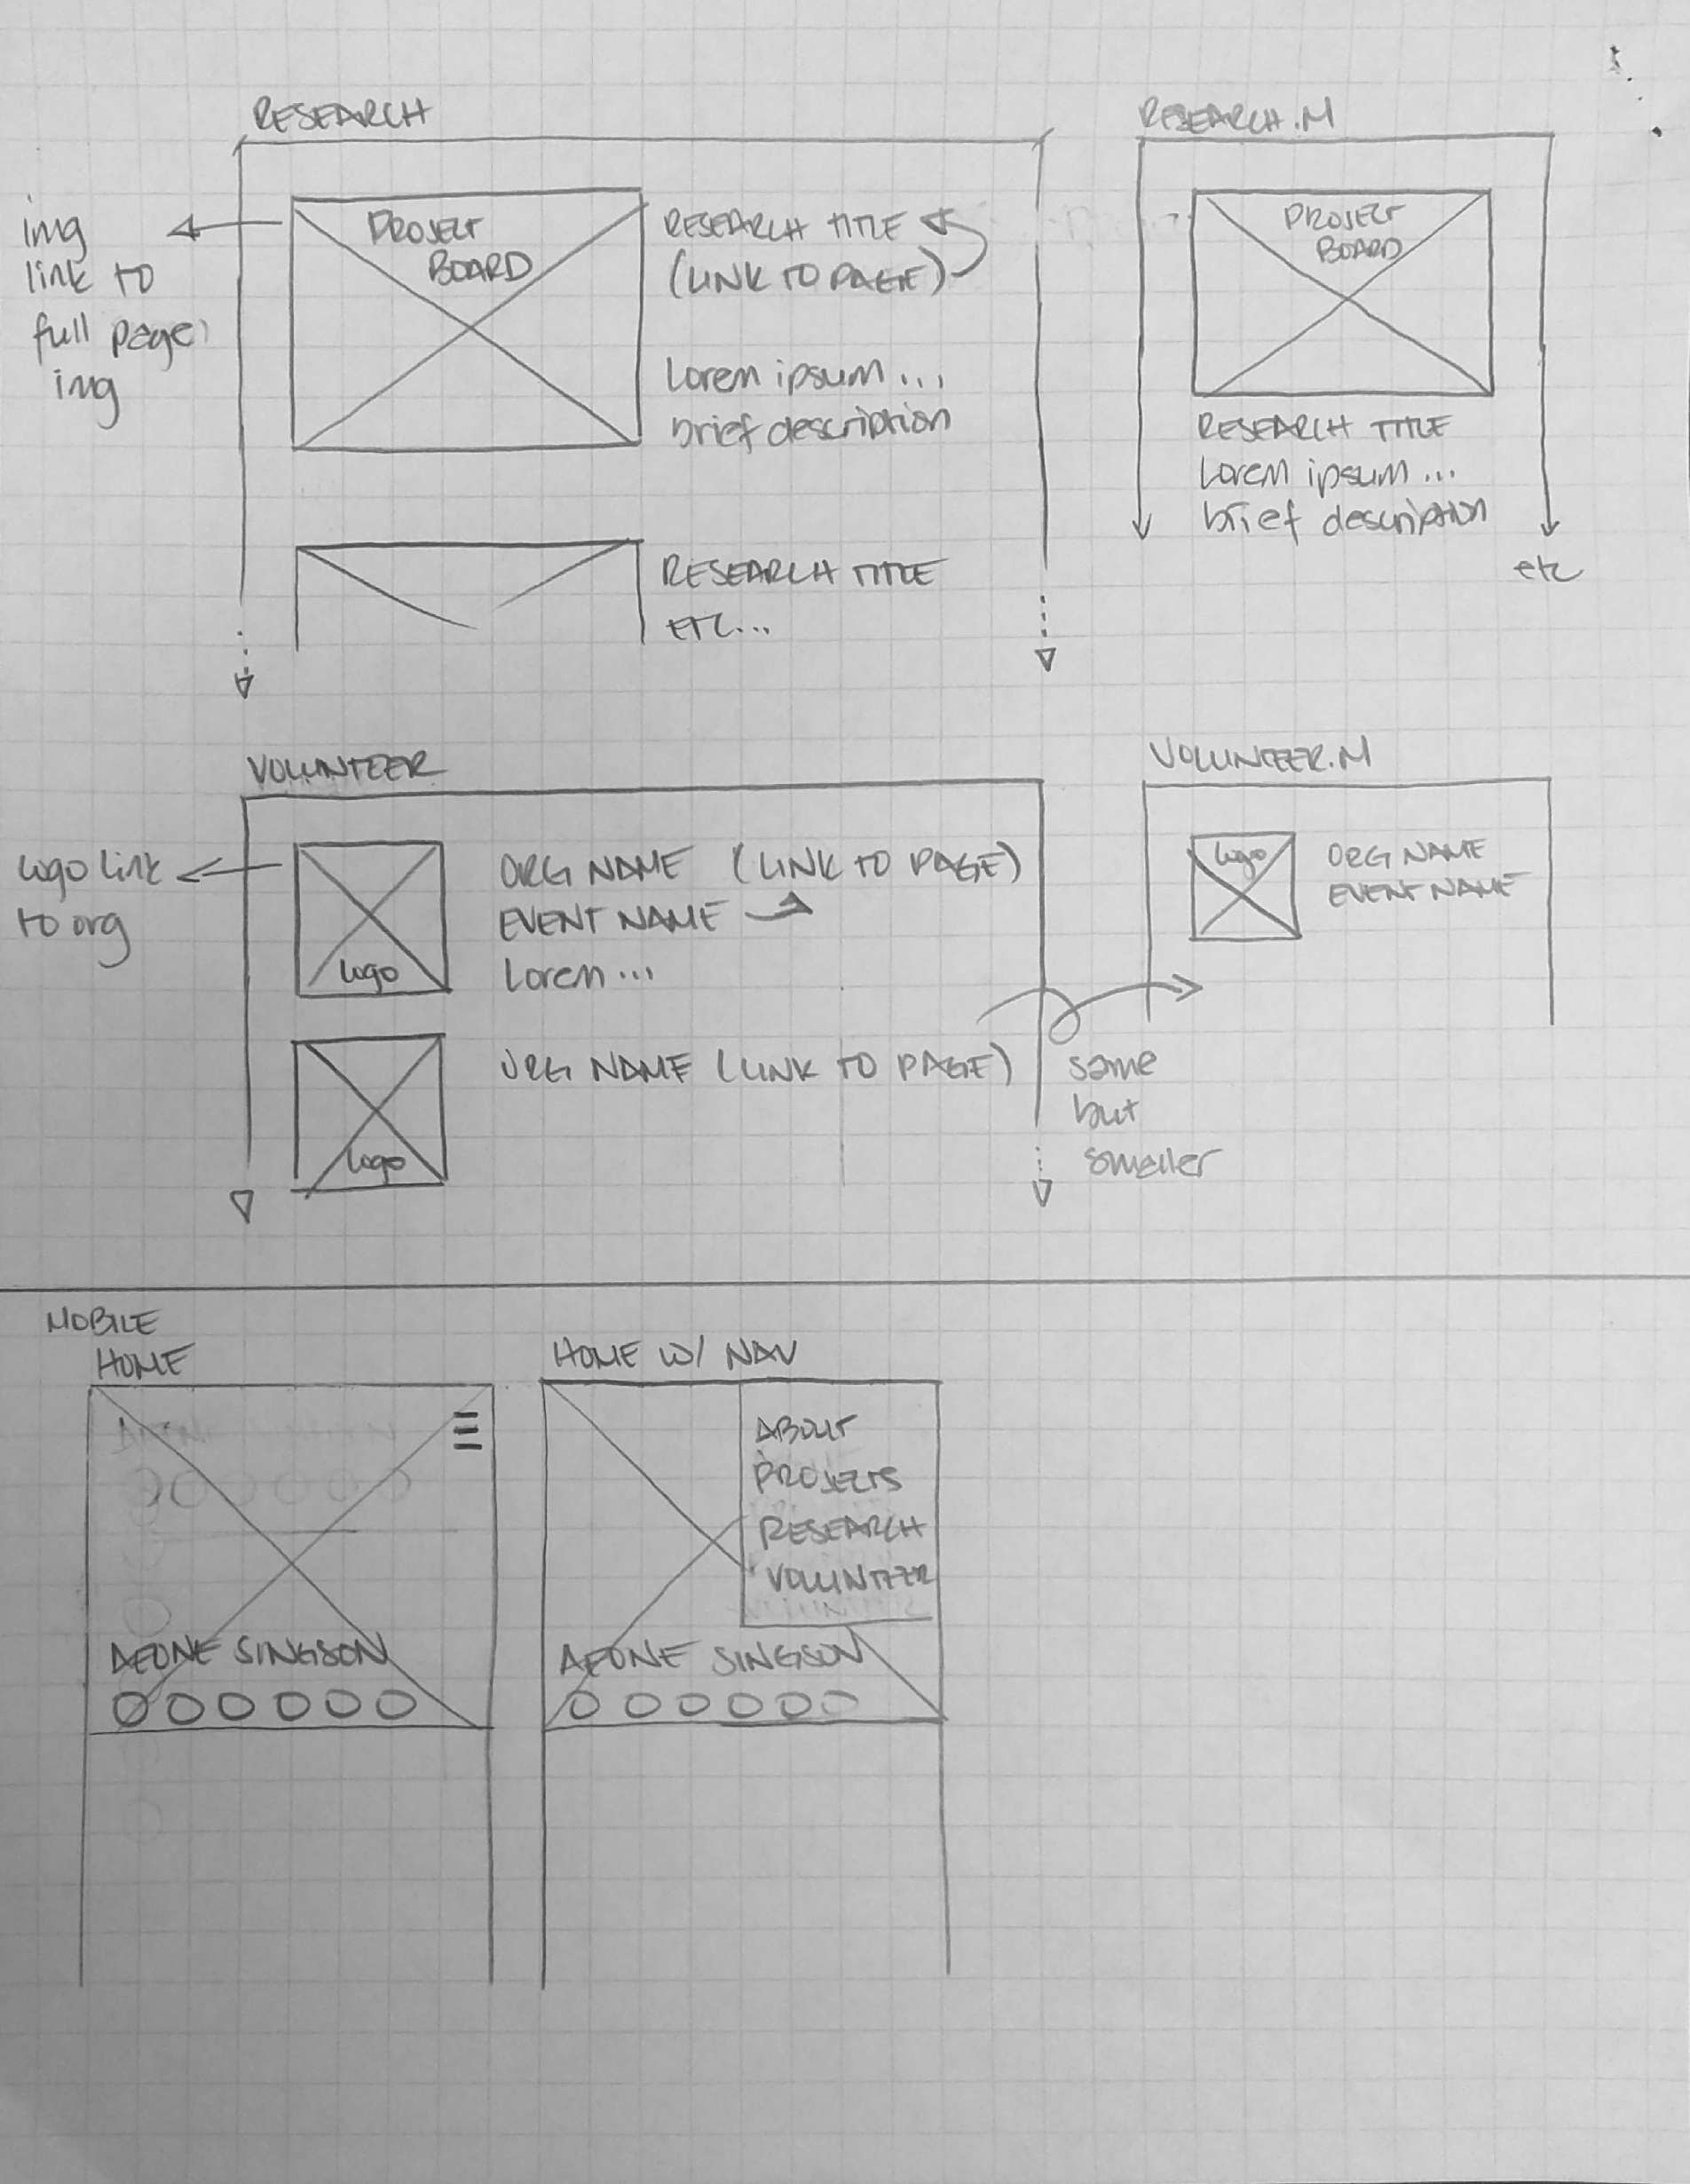 RESEARCH
img
link to
full page
img
PROJECT
BOARD
RESEARCH TITLE
(LINK TO PAGE)
Lorem ipsum ...
brief description
RESEARCH TITLE
ETC...
RESEARCH.M
PROJECT
BOARD
RESEARCH TITLE
Lorem ipsum ...
brief description
etc
VOLUNTEER
logo link
to org
logo
ORG NAME (LINK TO PAGE)
EVENT NAME
Lorem ...
logo
ORG NAME (LINK TO PAGE)
same
but
smaller
VOLUNTEER.M
logo
ORG NAME
EVENT NAME
MOBILE
HOME
AEONE SINGSON
HOME W/ NAV
ABOUT
PROJECTS
RESEARCH
VOLUNTEER
AEONE SINGSON